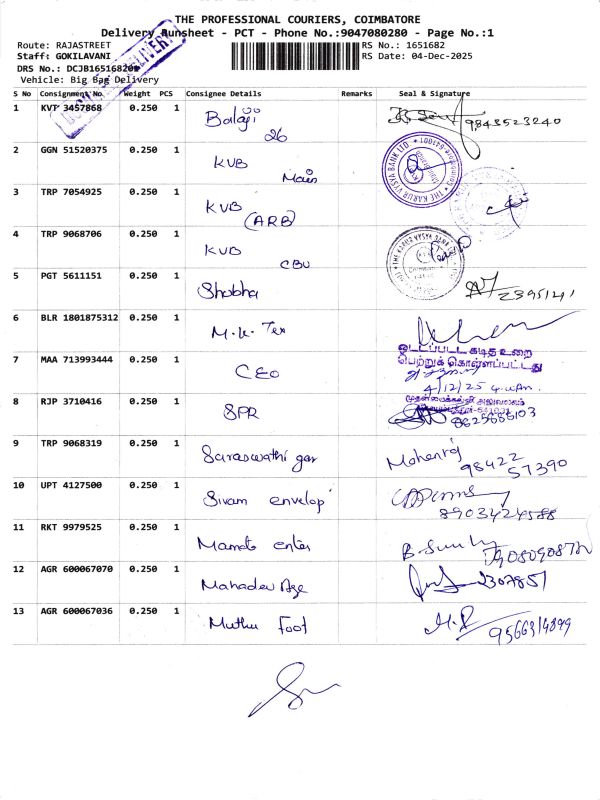 THE PROFESSIONAL COURIERS, COIMBATORE
Delivery Runsheet - PCT - Phone No.:9047080280 - Page No.:1
Route: RAJASTREET RS No.: 1651682
Staff: GOKILAVANI RS Date: 04-Dec-2025
DRS No.: DCJB1651682
Vehicle: Big Bag Delivery
S No Consignment No. Weight PCS Consignee Details Remarks Seal & Signature
1 KVT 3457868 0.250 1 Balaji 9843523240
26
2 GGN 51520375 0.250 1 KVB
Main
THE KARUR VYSYA BANK LTD
3 TRP 7054925 0.250 1 KVB
(ARB)
4 TRP 9068706 0.250 1 KVB
CBU
THE KARUR VYSYA BANK
5 PGT 5611151 0.250 1 Shobha 2395141
6 BLR 1801875312 0.250 1 M.K. Tex
ஒட்டப்பட்ட கடித உறை
பெற்றுக் கொள்ளப்பட்டது
7 MAA 713993444 0.250 1 CEO
4/12/25
8 RJP 3710416 0.250 1 SPR
9 TRP 9068319 0.250 1 Saraswathi gar Mohanraj
98422
57390
10 UPT 4127500 0.250 1 Sivam envelop
8903424588
11 RKT 9979525 0.250 1 Mamata enter
12 AGR 600067070 0.250 1 Mahadev Age 2307851
13 AGR 600067036 0.250 1 Muthu Foot M.R
9566314899